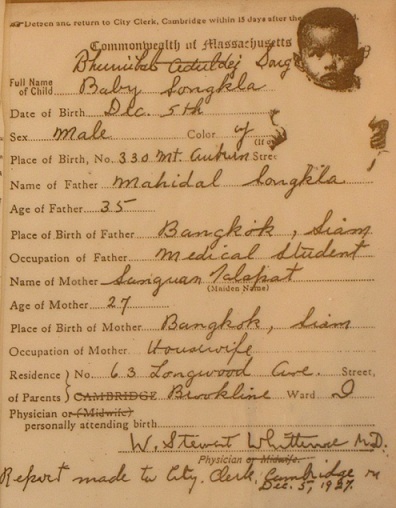 Detach and return to City Clerk, Cambridge within 15 days after the
Commonwealth of Massachusetts
Bhumibol Aduldej Song
Full Name of Child Baby Songkla
Date of Birth Dec. 5th
Sex Male Color y
Place of Birth, No. 330 Mt. Auburn Street
Name of Father Mahidal Songkla
Age of Father 35
Place of Birth of Father Bangkok, Siam
Occupation of Father Medical Student
Name of Mother Sanguan Talapat
(Maiden Name)
Age of Mother 27
Place of Birth of Mother Bangkok, Siam
Occupation of Mother Housewife
Residence of Parents No. 63 Longwood Ave. Street,
CAMBRIDGE Brookline Ward
Physician or (Midwife)
personally attending birth
W. Stewart Whittemore M.D.
Physician or Midwife.
Report made to City Clerk, Cambridge
Dec. 5, 1927.